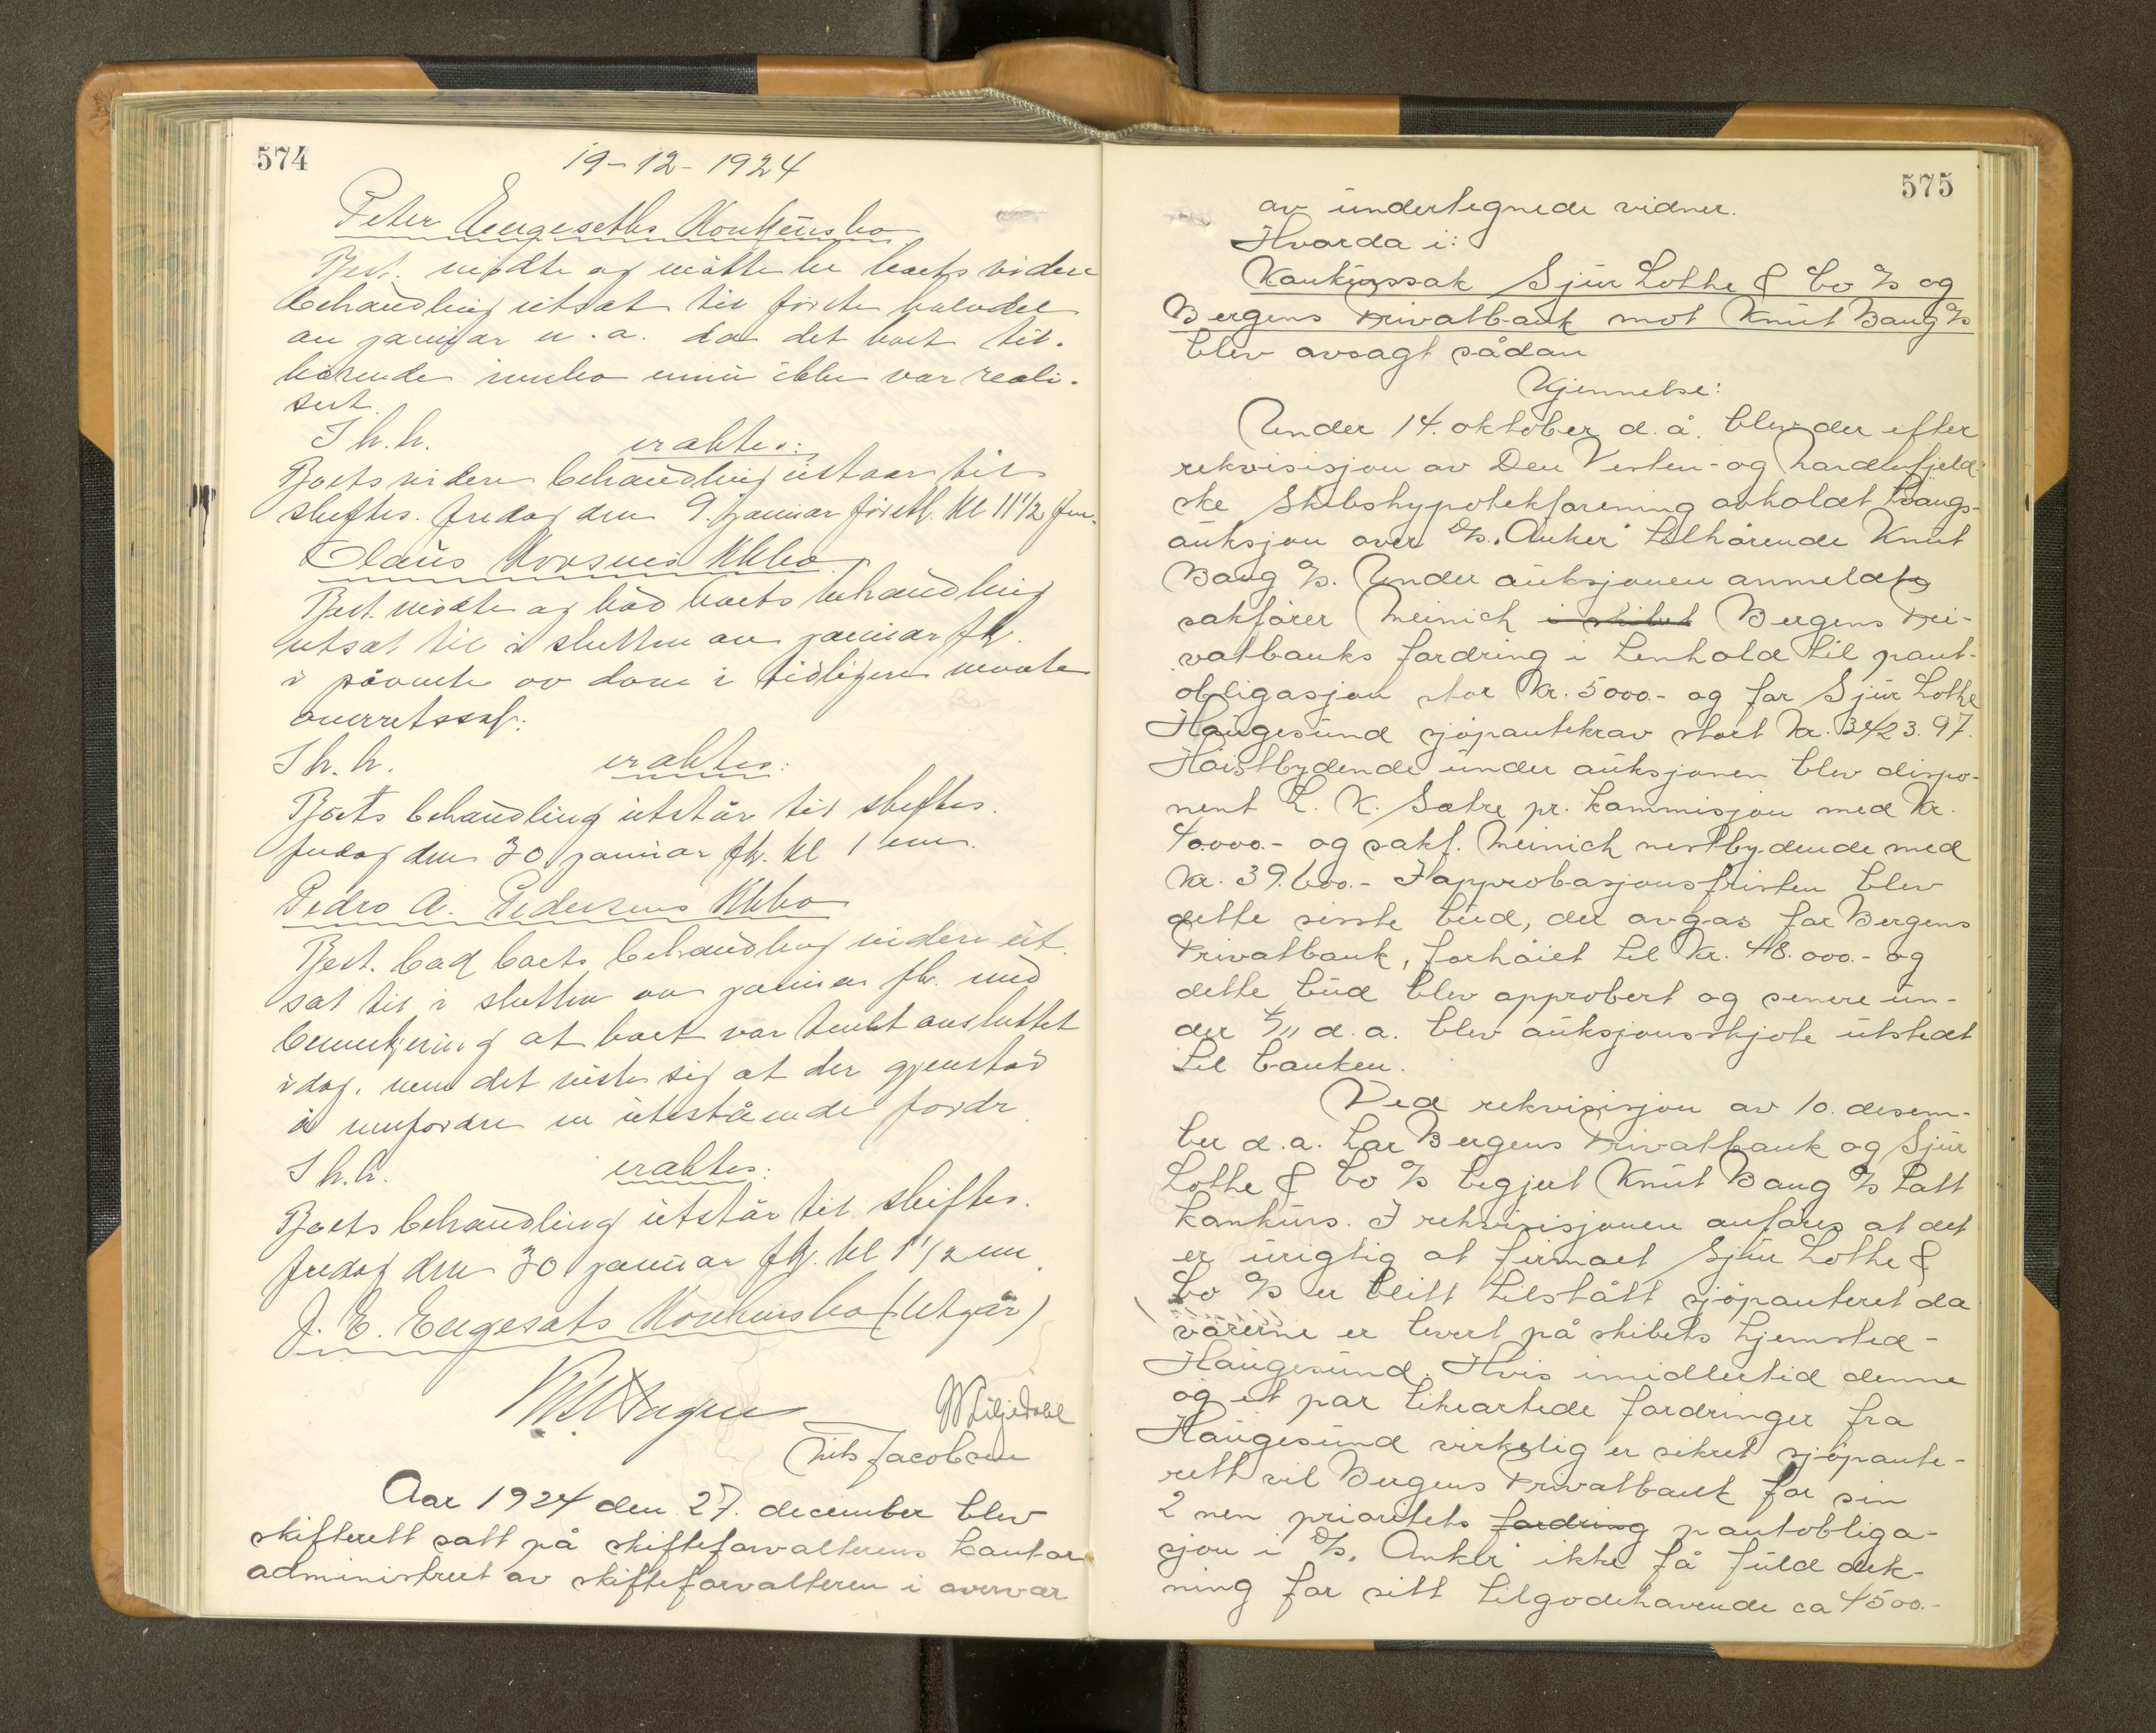 574
19-12-1924
Peter Engeseths Konkursbo
Best. mødte og måtte be boets videre
behandling utsat til første halvdel
av januar n. a. da det boet til-
hørende innbo ennu ikke var reali-
sert.
S. h. h. eraktes:
Boets videre behandling utstaar til
skiftes. fredag den 9. januar førstk. kl 11 1/2 fm.
Claus Korsnes Kkbo
Best. mødte og bad boets behandling
utsat til i slutten av januar fk.
i påvente av dom i tidligere nevnte
overretssak:
S h. h. eraktes:
Boets behandling utstår til skiftes.
fredag den 30 januar fk. kl 1 em.
Pedro A. Pedersens Kkbo
Best. bad boets behandling videre ut
sat til i slutten av januar fk. med
bemerkning at boet var tenkt avsluttet
idag, men det viste sig at der gjenstår
å innfordre en utestående fordr.
S h. h. eraktes:
Boets behandling utstår til skiftes.
fredag den 30 januar fk. kl 1 1/2 em.
J. E. Engesæts Konkursbo (Utgår)
W Liljedahl
Nils Jacobsen
Aar 1924 den 27. december blev
skifterett satt på skifteforvalterens kontor
administrert av skifteforvalteren i overvær
575
av undertegnede vidner.
Hvorda i:
Konkurssak Sjur Lothe & Co A/S og
Bergens Privatbank mot Knut Baug A/S
blev avsagt sådan
Kjennelse:
Under 14. oktober d. å. blev der efter
rekvisisjon av Den Vesten- og Nordenfjeld-
ske Skibshypotekforening avholdt tvangs-
auksjon over D/S. "Anker" tilhørende Knut
Baug A/S. Under auksjonen anmeldte
sakfører Meinich i skibet Bergens Pri-
vatbanks fordring i henhold til pant-
obligasjon stor Kr. 5000.- og for Sjur Lothe
Haugesund sjøpantekrav stort Kr. 3423.97.
Høistbydende under auksjonen blev dispo-
nent L. K. Sætre pr. kommisjon med Kr.
40.000.- og sakf. Meinich nestbydende med
Kr. 39.600.- I approbasjonsfristen blev
dette siste bud, der avgas for Bergens
Privatbank, forhøiet til Kr. 48.000.- og
dette bud blev approbert og senere un-
der 4/11 d. a. blev auksjonsskjøte utstedt
til banken.
Ved rekvisisjon av 10. desem-
ber d. a. har Bergens Privatbank og Sjur
Lothe & Co A/S begjert Knut Baug A/S tatt
konkurs. I rekvisisjonen anføres at det
er urigtig at firmaet Sjur Lothe &
Co A/S er blitt tilstått sjøpanteret da
varerne er levert på skibets hjemsted -
Haugesund. Hvis imidlertid denne
og et par likeartede fordringer fra
Haugesund virkelig er sikret sjøpante-
rett vil Bergens Privatbank for sin
2 nen prioritets fordring pantobliga-
sjon i D/S. "Anker" ikke få fuld dek-
ning for sitt tilgodehavende ca 4500.-